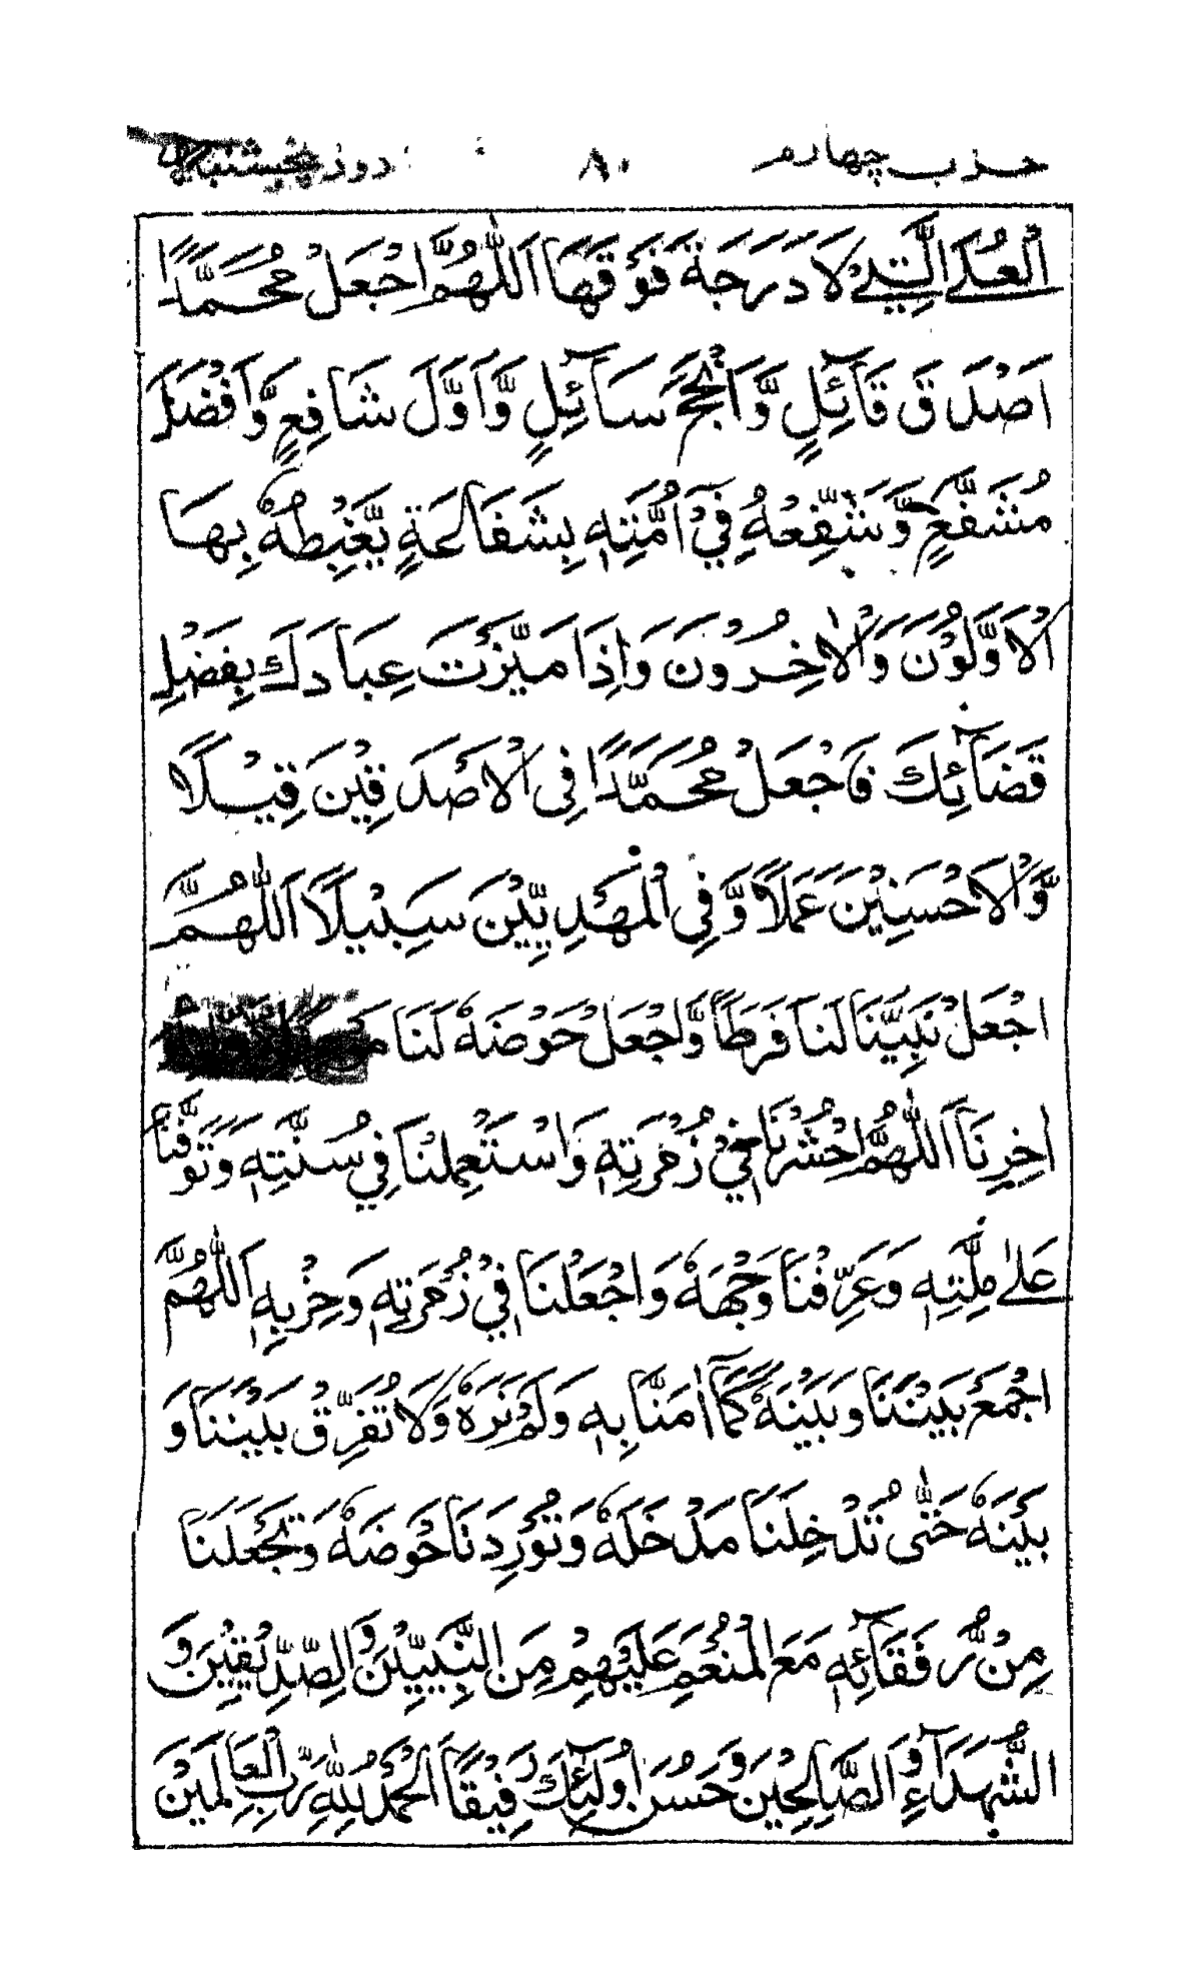 حزب چهارم ۸۰ روز پنجشنبه
الْعُلَى الَّتِيْ لَا دَرَجَةَ فَوْقَهَا اَللّٰهُمَّ اجْعَلْ مُحَمَّدًا
اَصْدَقَ قَآئِلٍ وَّاَنْجَحَ سَآئِلٍ وَّاَوَّلَ شَافِعٍ وَّاَفْضَلَ
مُشَفَّعٍ وَّشَفِّعْهُ فِيْٓ اُمَّتِهٖ بِشَفَاعَةٍ يَّغْبِطُهٗ بِهَا
الْاَوَّلُوْنَ وَالْاٰخِرُوْنَ وَاِذَا مَيَّزْتَ عِبَادَكَ بِفَصْلِ
قَضَآئِكَ فَاجْعَلْ مُحَمَّدًا فِى الْاَصْدَقِيْنَ قِيْلًا
وَّالْاَحْسَنِيْنَ عَمَلًا وَّفِي الْمَهْدِيِّيْنَ سَبِيْلًا اَللّٰهُمَّ
اجْعَلْ نَبِيَّنَا لَنَا فَرَطًا وَّاجْعَلْ حَوْضَهٗ لَنَا
اٰخِرِنَا اَللّٰهُمَّ احْشُرْنَا فِيْ زُمْرَتِهٖ وَاسْتَعْمِلْنَا فِيْ سُنَّتِهٖ وَتَوَفَّنَا
عَلٰى مِلَّتِهٖ وَعَرِّفْنَا وَجْهَهٗ وَاجْعَلْنَا فِيْ زُمْرَتِهٖ وَحِزْبِهٖ اَللّٰهُمَّ
اجْمَعْ بَيْنَنَا وَبَيْنَهٗ كَمَآ اٰمَنَّا بِهٖ وَلَمْ نَرَهٗ وَلَا تُفَرِّقْ بَيْنَنَا وَ
بَيْنَهٗ حَتّٰى تُدْخِلَنَا مَدْخَلَهٗ وَتُوْرِدَنَا حَوْضَهٗ وَتَجْعَلَنَا
مِنْ رُّفَقَآئِهٖ مَعَ الْمُنْعَمِ عَلَيْهِمْ مِنَ النَّبِيِّيْنَ وَالصِّدِّيْقِيْنَ وَ
الشُّهَدَآءِ وَالصَّالِحِيْنَ وَحَسُنَ اُولٰٓئِكَ رَفِيْقًا اَلْحَمْدُ لِلّٰهِ رَبِّ الْعَالَمِيْنَ